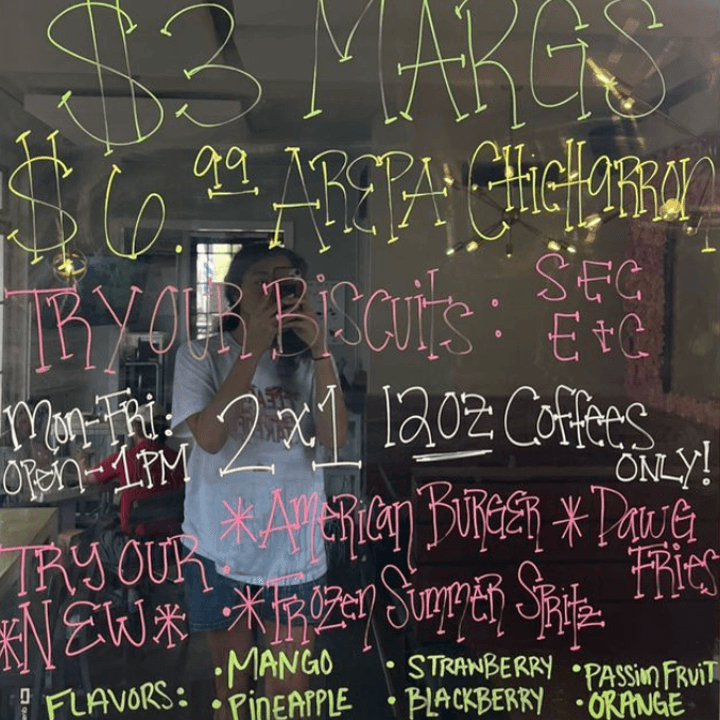 $3 MARGS
$6.99 AREPA CHICHARRON
TRY OUR BISCUITS: SEC
E+C
Mon-Fri: 2x1 12oz Coffees
OPEN-1PM ONLY!
*AMERICAN BURGER *DAWG
TRY OUR FRIES
*NEW* *FROZEN SUMMER SPRITZ
FLAVORS: •MANGO •STRAWBERRY •PASSION FRUIT
•PINEAPPLE •BLACKBERRY •ORANGE